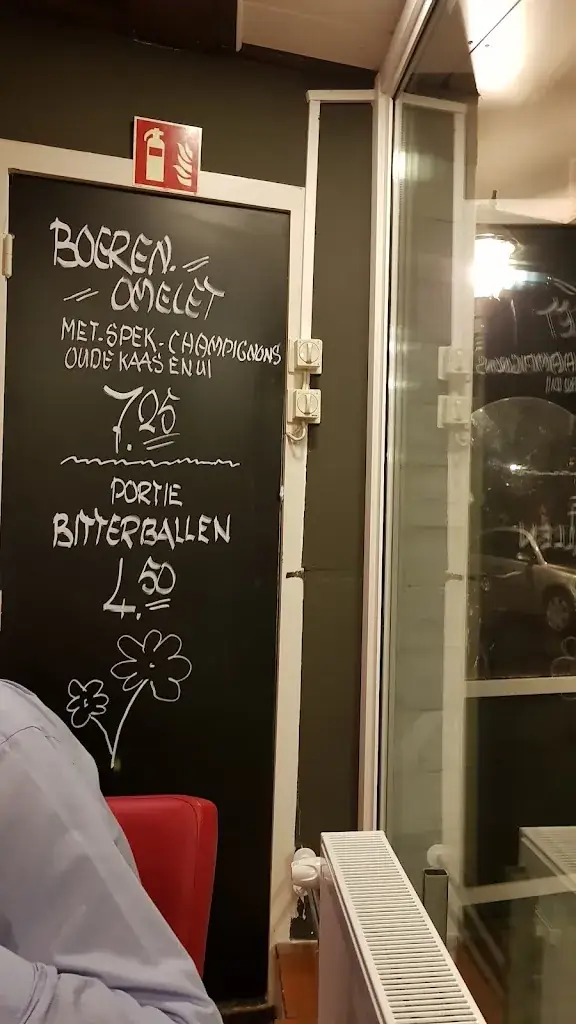 BOEREN.
OMELET
MET-SPEK-CHAMPIGNONS
OUDE KAAS EN UI
7.25
PORTIE
BITTERBALLEN
4.50